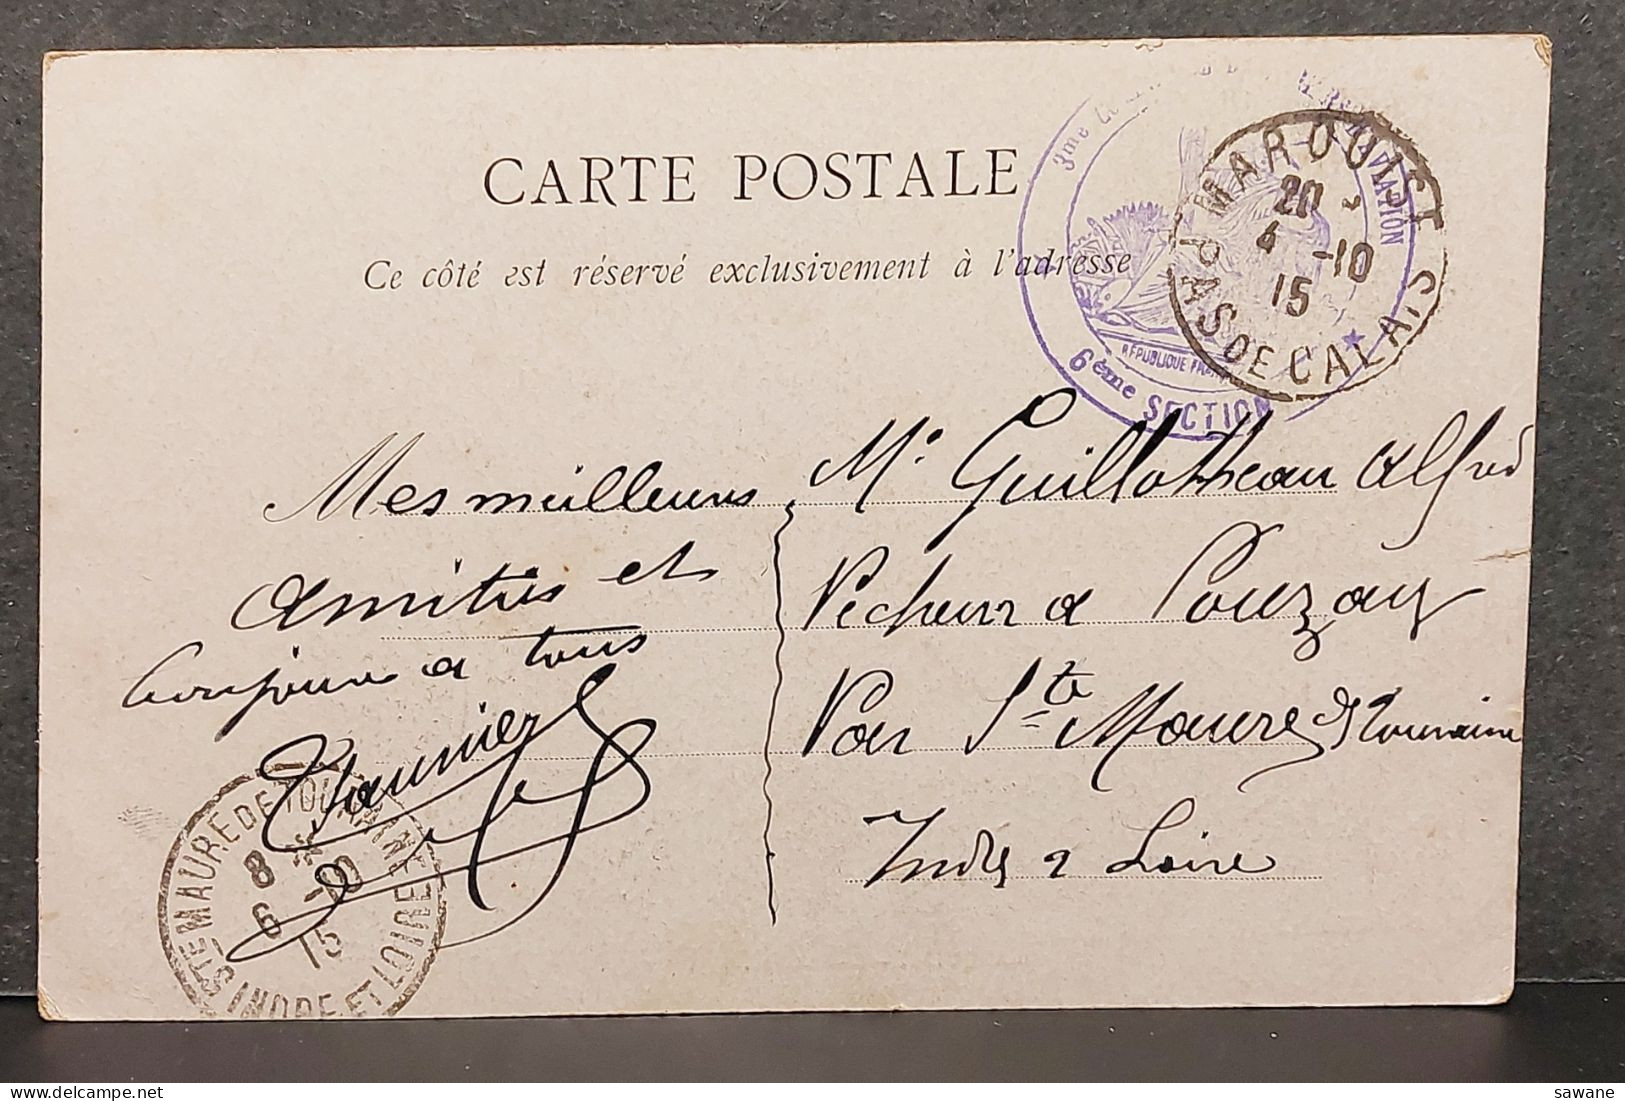 CARTE POSTALE
Ce côté est réservé exclusivement à l'adresse
3me
AVIATION
RÉPUBLIQUE
6ème SECTION
MAROUIST
20
4 -10
15
PAS DE CALAIS
Mes meilleurs
amitiés et
bonjour a tous
Mr Guillotteau Alfred
Pecheur a Pouzay
Par Ste Maure de Touraine
Indre & Loire
STE MAURE DE TOURAINE
8
6 -10
15
INDRE ET LOIRE
sawane